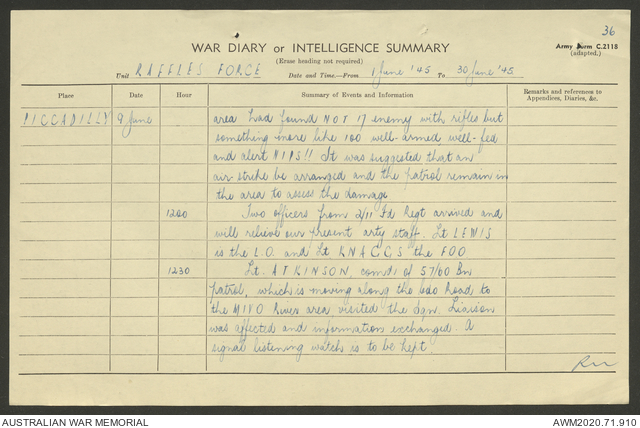 36
WAR DIARY or INTELLIGENCE SUMMARY
Army Form C.2118
(Erase heading not required)
(adapted.)
Unit RAFFLES FORCE Date and Time.—From 1 June '45 To 30 June '45.
Place Date Hour Summary of Events and Information Remarks and references to
Appendices, Diaries, &c.
PICCADILLY 9 June area had found NOT 17 enemy with rifles but
something more like 100 well-armed, well-fed
and alert NIPS!! It was suggested that an
air strike be arranged and the patrol remain in
the area to assess the damage
1200 Two officers from 2/11 Fd Regt arrived and
will relieve our present arty staff. Lt LEWIS
is the L.O. and Lt KNAGGS the FOO
1230 Lt. ATKINSON, comd of 57/60 Bn
patrol, which is moving along the Road to
the MIVO River area, visited the bgn. Liaison
was affected and information exchanged. A
signal listening watch is to be kept
AUSTRALIAN WAR MEMORIAL
AWM2020.71.910